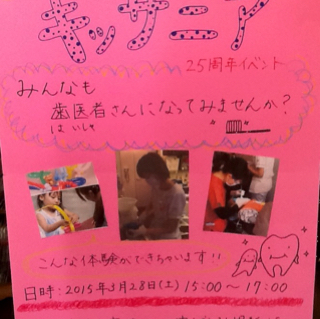 キッザニア
25周年イベント
みんなも
歯医者さんになってみませんか?
はいしゃ
こんな体験ができちゃいます!!
日時:2015年3月28日(土) 15:00〜17:00